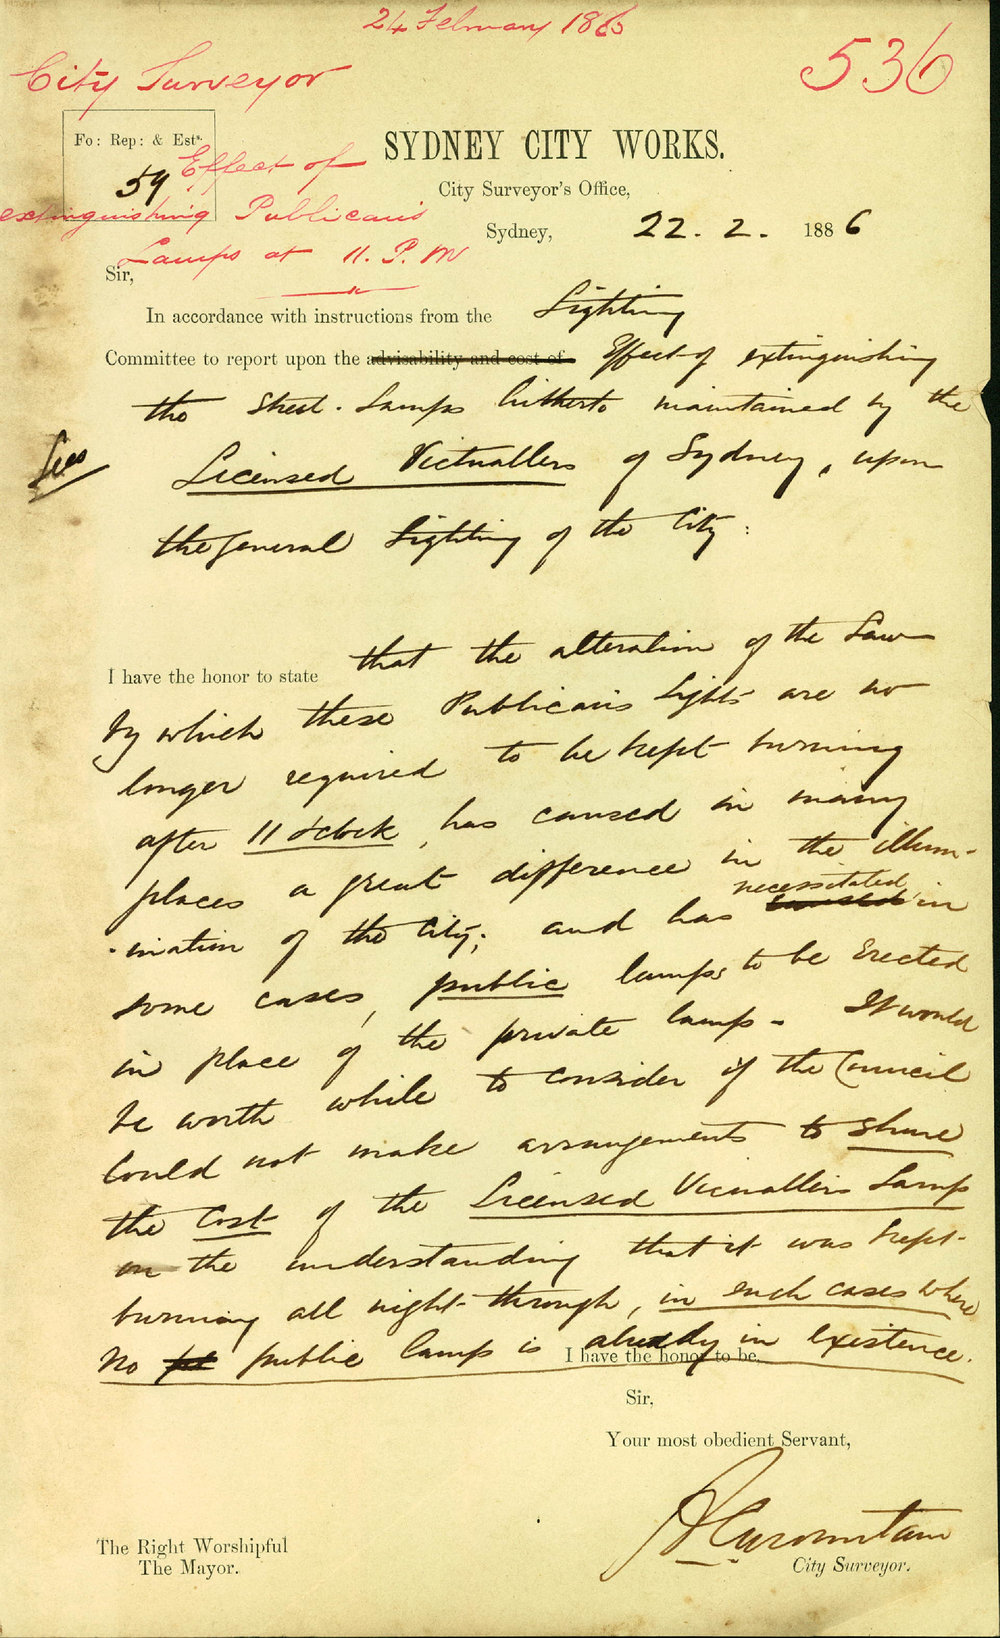 24 February 1886
City Surveyor
536
Fo: Rep: & Ests.
59
Effect of
extinguishing Publicans
Lamps at 11. P.M
SYDNEY CITY WORKS.
City Surveyor's Office,
Sydney, 22. 2. 1886
Sir,
In accordance with instructions from the Lighting
Committee to report upon the advisability and cost of Effect of extinguishing
the Street Lamps hitherto maintained by the
Licensed Victuallers of Sydney, upon
the General Lighting of the City:
I have the honor to state that the alteration of the Law
by which these Publicans Lights are no
longer required to be kept burning
after 11 o'clock, has caused in many
places a great difference in the illum-
-ination of the City; and has necessitated in
some cases, public lamps to be Erected
in place of the private lamps - It would
be worth while to consider if the Council
Could not make arrangements to share
the Cost of the Licensed Victuallers Lamp
on the understanding that it was kept
burning all night through, in such cases where
No public lamp is already in Existence.
I have the honor to be,
Sir,
Your most obedient Servant,
City Surveyor.
The Right Worshipful
The Mayor.